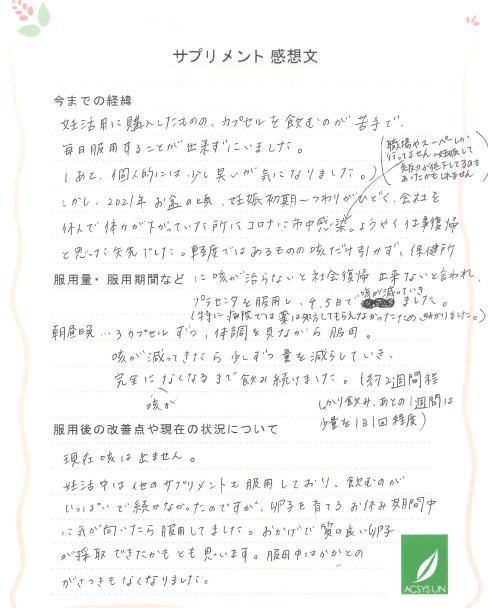 サプリメント 感想文
今までの経緯
妊活用に購入したものの、カプセルを飲むのが苦手で、
毎日服用することが出来ずにいました。
(あと、個人的には少し臭いが気になりました。)
(職場やスーパーしか
行ってません。妊娠して
免疫力が低下してるのも
あったかもしれません)
しかし、2021年お盆の頃、妊娠初期～つわりがひどく、会社を
休んで体力が下がっていた所にコロナに市中感染。ようやく仕事復帰
と思った矢先でした。軽度ではあるものの咳だけ引かず、保健所
に咳が治らないと社会復帰出来ないと言われ、
服用量・服用期間など
プラセンタを服用し、4.5日で咳が減っていきました。
(特に病院では薬は処方してもらえなかったため、助かりました。)
朝昼晩…3カプセルずつ、体調を見ながら服用。
咳が減ってきたら少しずつ量を減らしていき、
完全になくなるまで飲み続けました。(約2週間程
咳が
しっかり飲み、あとの1週間は
少量を1日1回程度)
服用後の改善点や現在の状況について
現在咳は出ません。
妊活中は他のサプリメントも服用しており、飲むのが
いっぱいで続かなかったのですが、卵子を育てるお休み期間中
に気が向いたら服用してました。おかげで質の良い卵子
が採取できたかもとも思います。服用中はかかとの
がさつきもなくなりました。
ACSYSUN